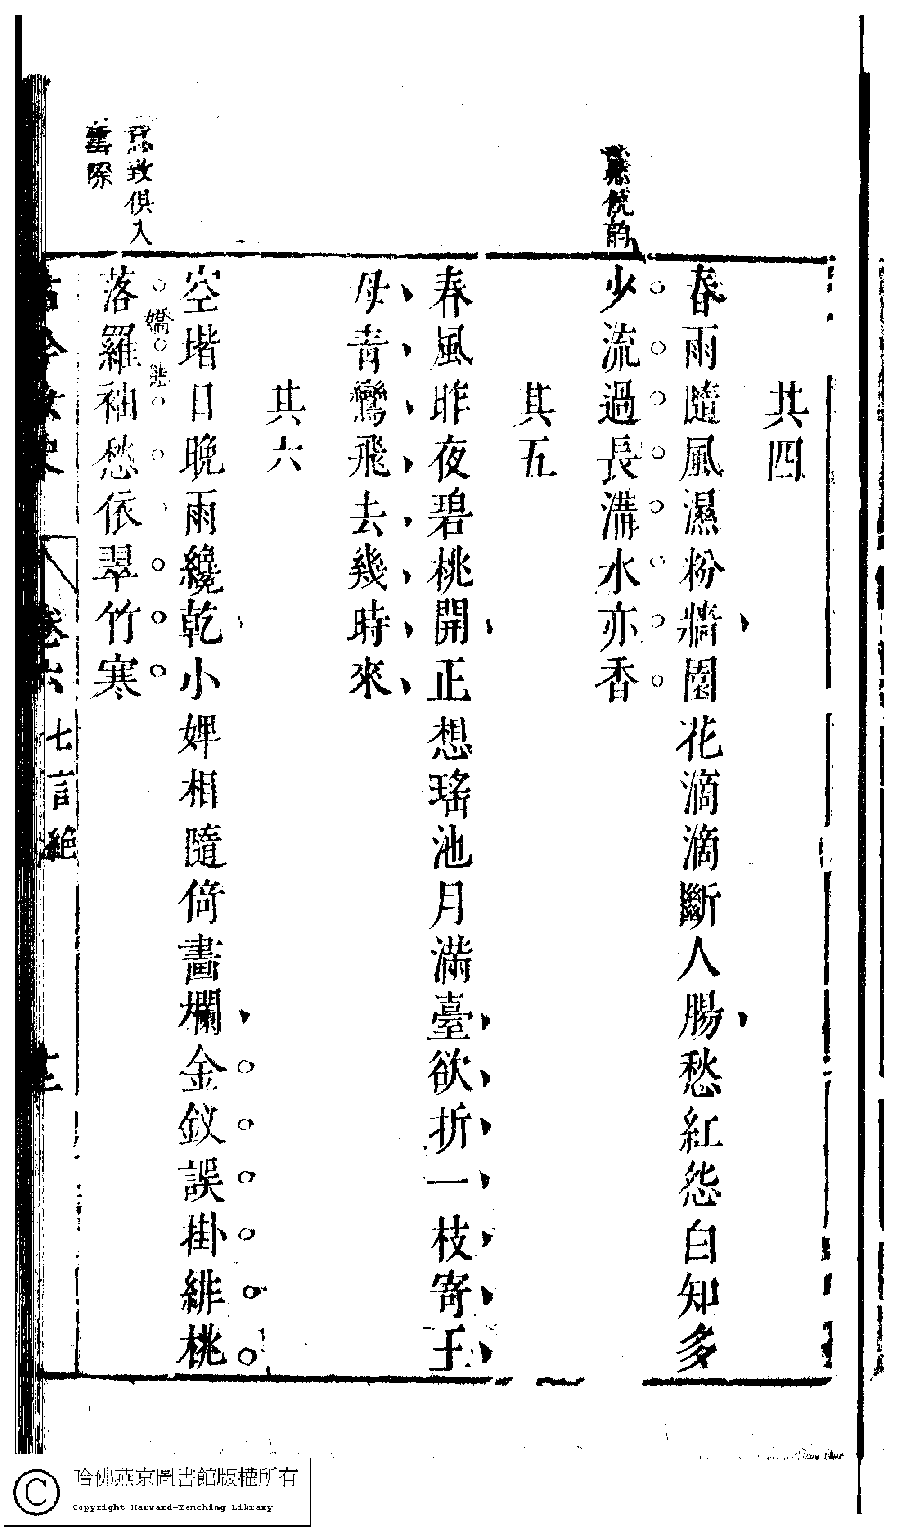 其四
春雨隨風濕粉牆園花滴滴斷人腸愁紅怨白知多
少流過長溝水亦香
其五
春風昨夜碧桃開正想瑤池月滿臺欲折一枝寄王
母青鸞飛去幾時來
其六
空堦日晚雨纔乾小婢相隨倚畫欄金釵誤掛緋桃
落羅袖愁依翠竹寒
致俱入
際
卷六
七言絶
哈佛燕京圖書館版權所有
Copyright Harvard-Yenching Library